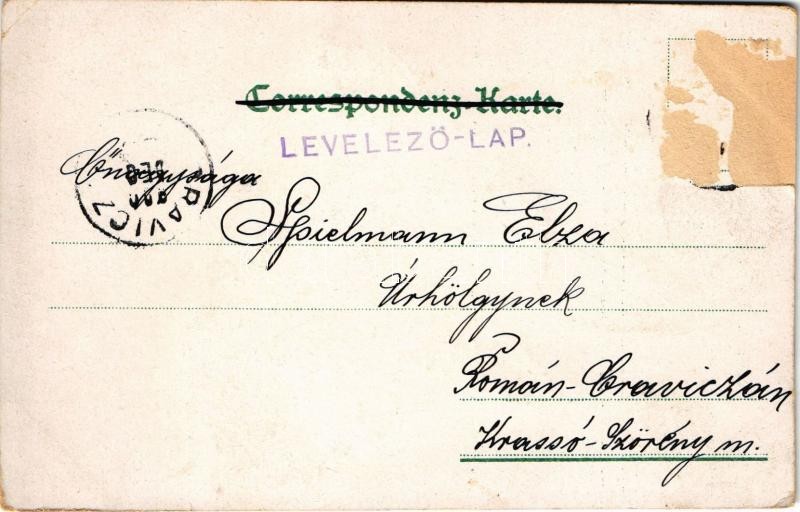 Correspondenz-Karte.
LEVELEZŐ-LAP.
Őnagysága
Spielmann Elza
Úrhölgynek
Román-Oraviczán
Krassó-Szörény m.
RAVICZ